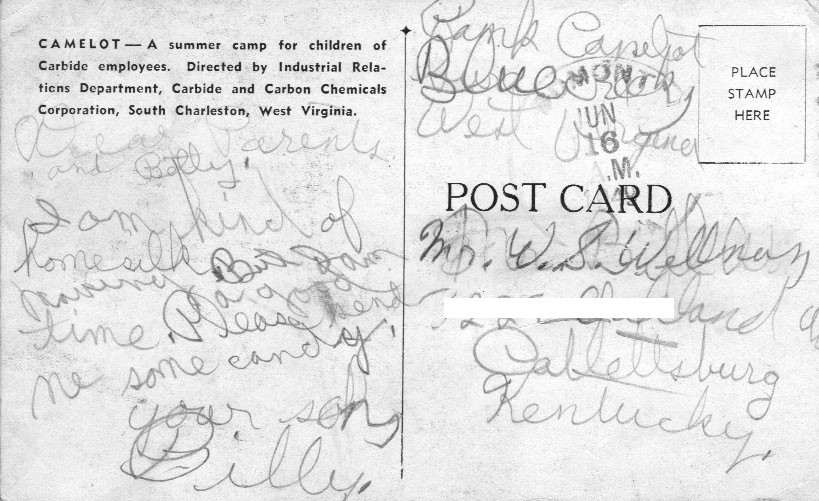 CAMELOT — A summer camp for children of
Carbide employees. Directed by Industrial Rela-
tions Department, Carbide and Carbon Chemicals
Corporation, South Charleston, West Virginia.
Dear Parents
and Billy,
I am kind of
homesilk
But I am
haveing a good
time. Please send
me some candy.
your son,
Billy.
Kamk Camelot
Blue Creek,
West Virginia
MON
JUN
16
.M.
PLACE
STAMP
HERE
POST CARD
Mr. W. S. Wellman
Catlettsburg
Kentucky.